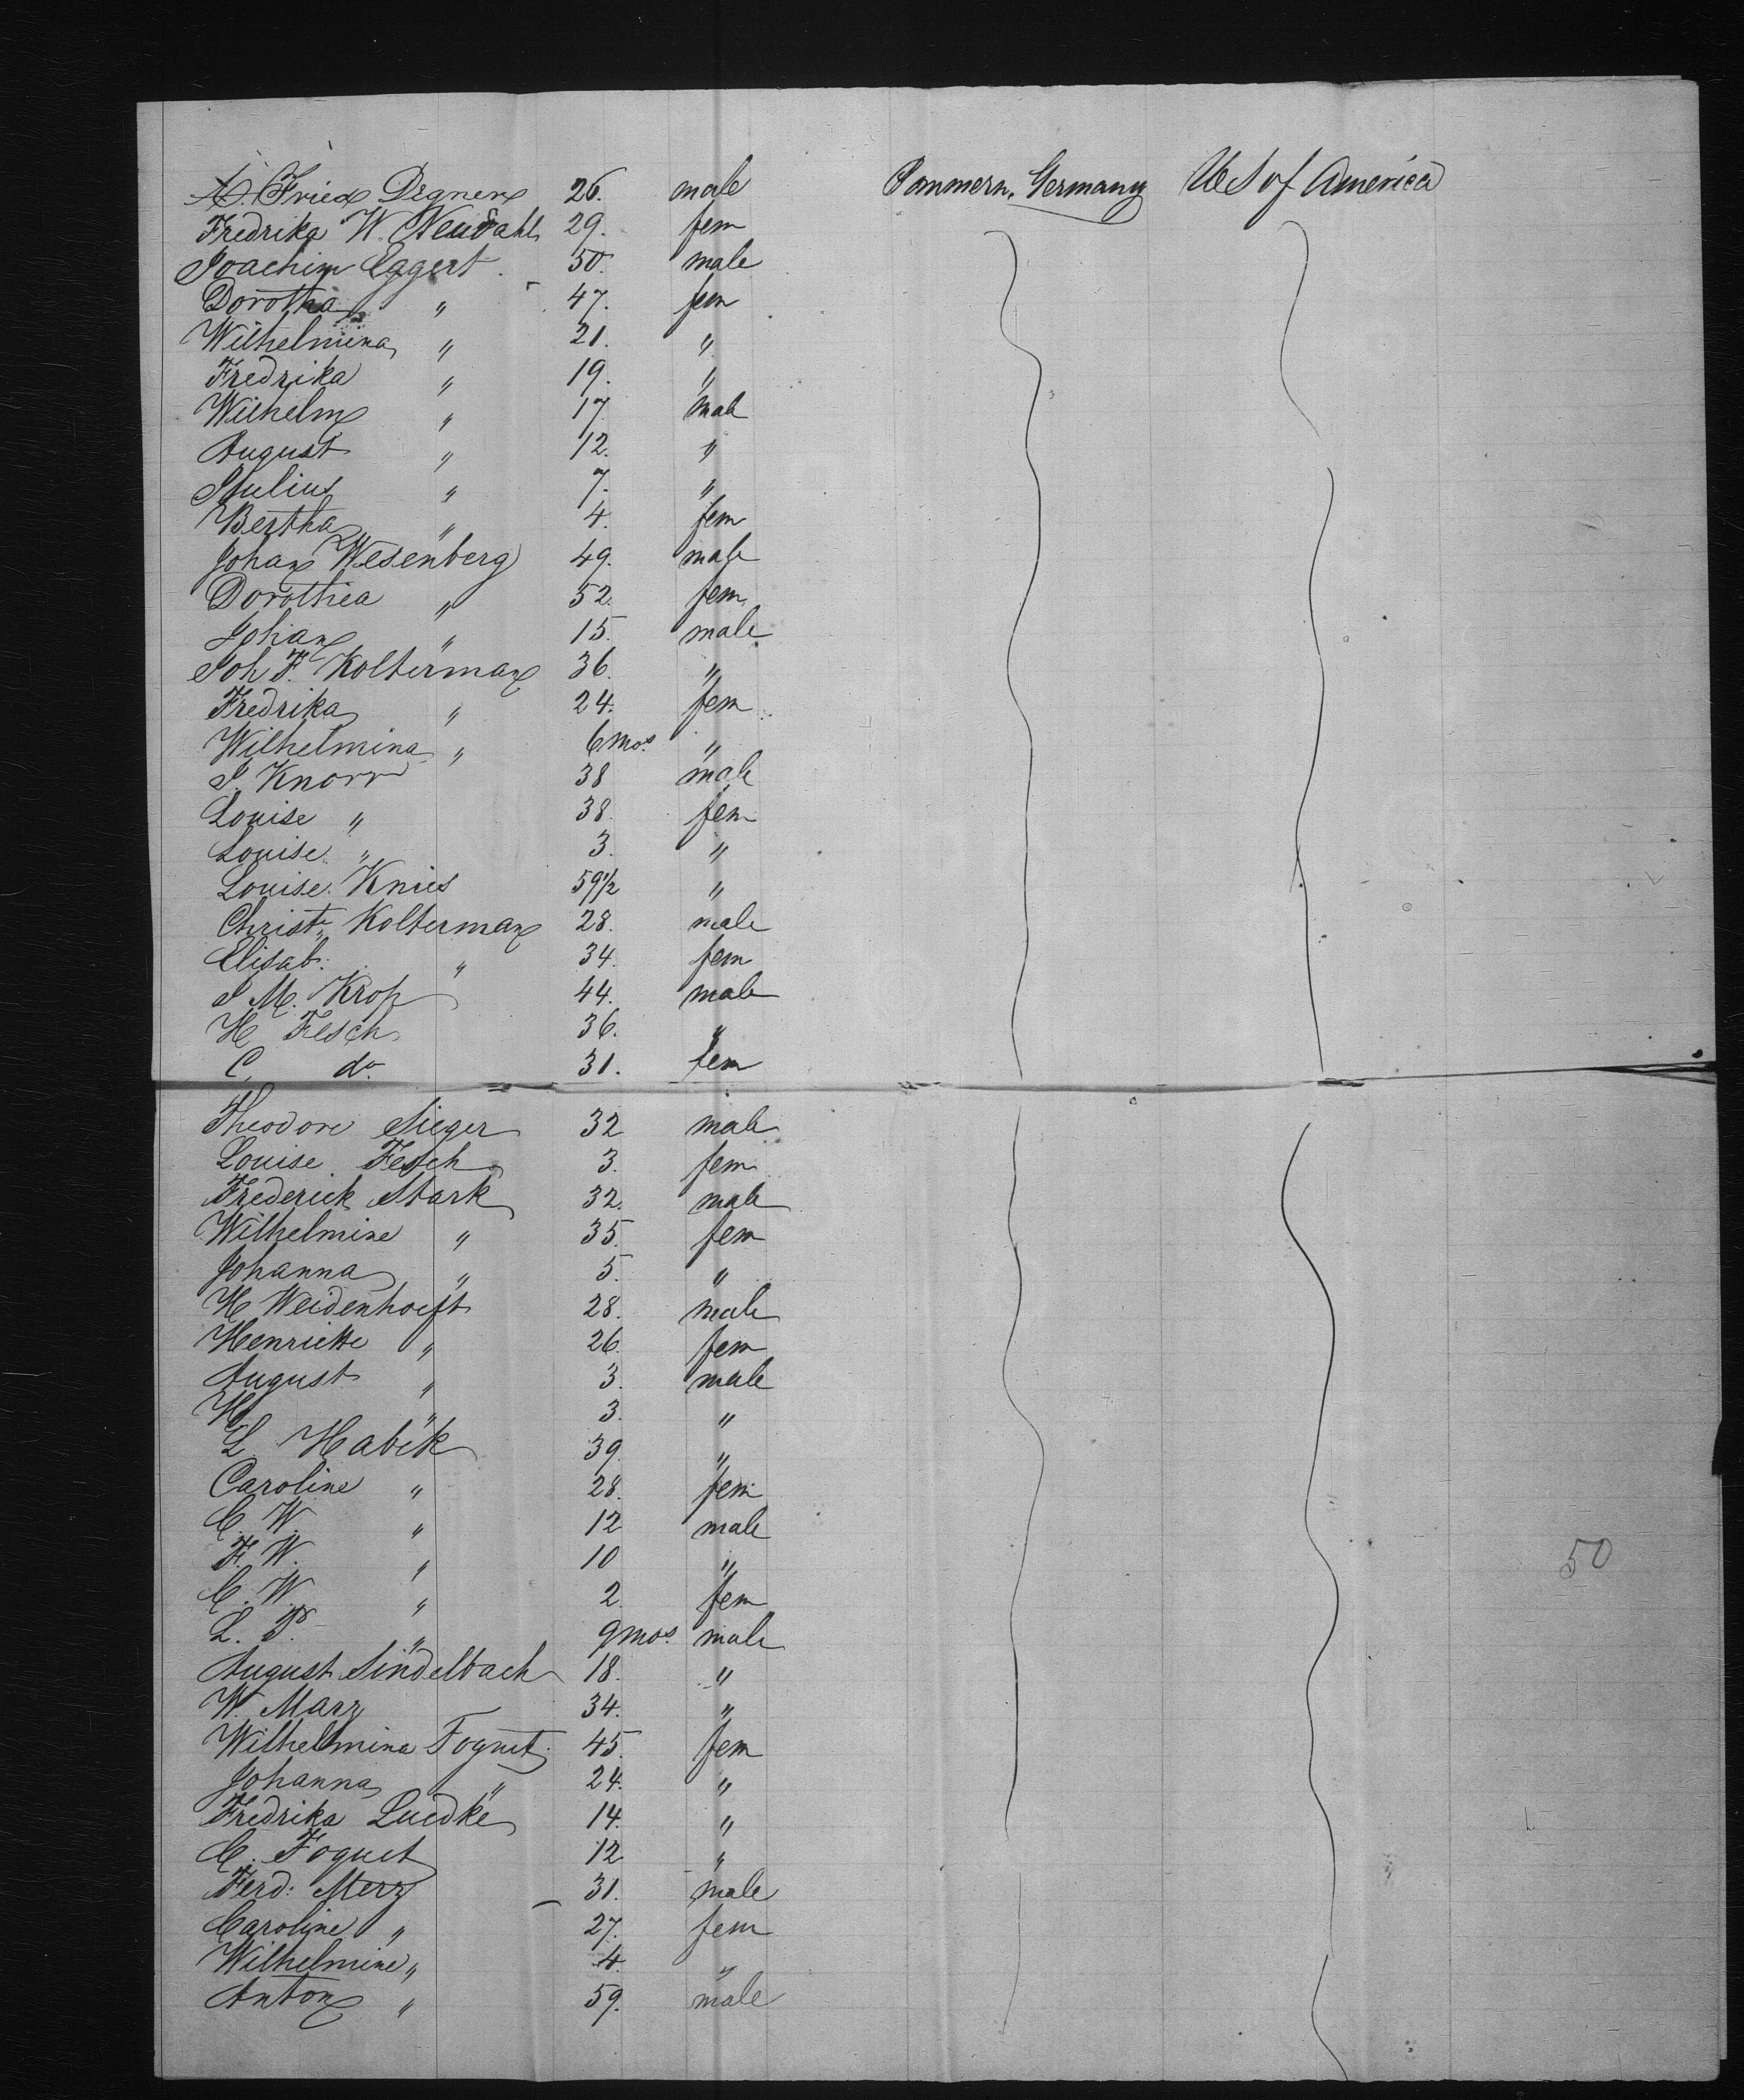 A. Fried Degner 26. male Pommern, Germany U S of America
Fredrika W. Neudahl 29. fem
Joachim Eggert 50. male
Dorothea " 47. fem
Wilhelmina " 21. "
Fredrika " 19. "
Wilhelm " 17. male
August " 12. "
Julius " 7. "
Bertha " 4. fem
Johan Wesenberg 49. male
Dorothea " 52. fem
Johan " 15. male
Joh F. Kolterman 36. "
Fredrika " 24. fem
Wilhelmina " 6 mos. "
J. Knorr 38 male
Louise " 38. fem
Louise " 3. "
Louise Knies 59½ "
Christ. Kolterman 28. male
Elisab: " 34. fem
J M. Krop 44. male
H Fesch 36. "
C. do. 31. fem
Theodore Sieger 32 male
Louise Fesch 3. fem
Frederick Stark 32. male
Wilhelmine " 35. fem
Johanna " 5. "
H Weidenhoeft 28. male
Henriette " 26. fem
August " 3. male
H " 3. "
L. Habek 39. "
Caroline " 28. fem
C. W. " 12 male
F. W. " 10 "
C. W. " 2. fem
L. " 9 mos. male
August Sindelbach 18. "
W. Marz 34. "
Wilhelmina Foquet 45. fem
Johanna " 24. "
Fredrika Luedke 14. "
C. Foquet 12 "
Ferd: Merz 31. male
Caroline " 27. fem
Wilhelmine " 4. "
Anton " 59. male
50